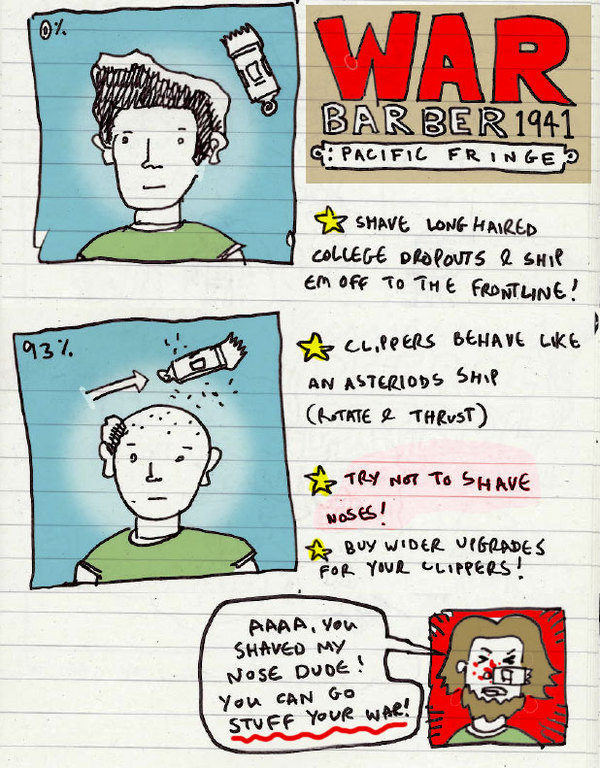 0%
WAR
BARBER 1941
: PACIFIC FRINGE
SHAVE LONG HAIRED
COLLEGE DROPOUTS & SHIP
EM OFF TO THE FRONTLINE!
93%
CLIPPERS BEHAVE LIKE
AN ASTERIODS SHIP
(ROTATE & THRUST)
TRY NOT TO SHAVE
NOSES!
BUY WIDER UPGRADES
FOR YOUR CLIPPERS!
AAAA, YOU
SHAVED MY
NOSE DUDE!
YOU CAN GO
STUFF YOUR WAR!